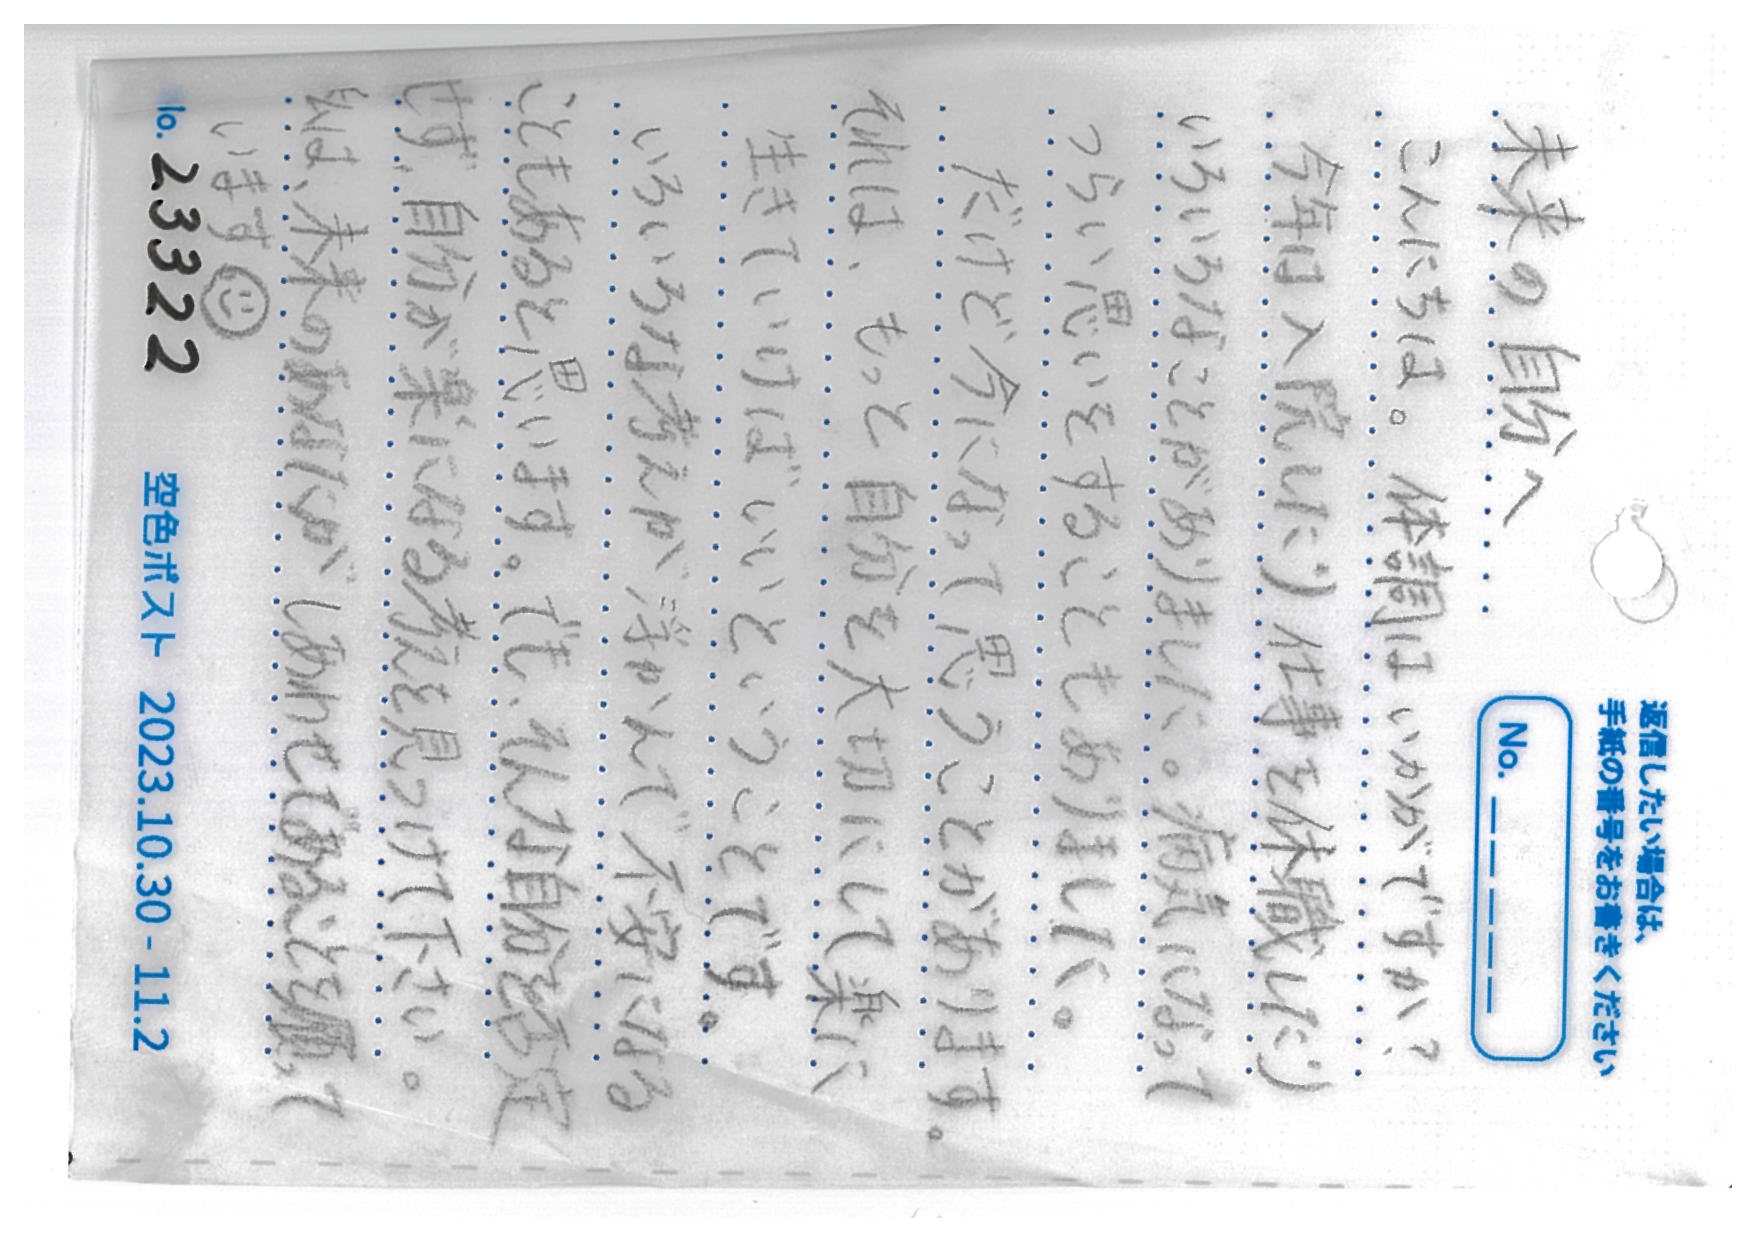 返信したい場合は、
手紙の番号をお書きください
No. _ _ _ _ _
未来の自分へ
こんにちは。体調はいかがですか？
今年は入院したり仕事を休職したり
いろいろなことがありました。病気になって
つらい思いをすることもありました。
だけど今になって思うことがあります。
それは、もっと自分を大切にして楽に
生きていけばいいということです。
いろいろな考えが浮かんで不安になる
こともあると思います。でも、そんな自分を否定
せず、自分が楽になる考えを見つけて下さい。
私は、未来のあなたがしあわせであることを願って
います
No. 23322
空色ポスト 2023.10.30 - 11.2